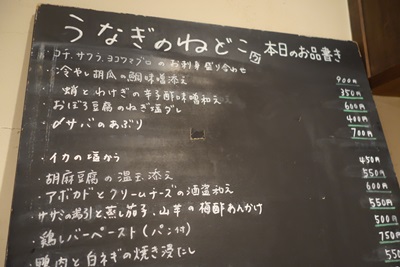 うなぎのねどこ 本日のお品書き
・コチ、サワラ、ヨコワマグロのお刺身盛り合わせ 900円
・冷やし胡瓜の鯛味噌添え 350円
・蛸とわけぎの辛子酢味噌和え 600円
・おぼろ豆腐のねぎ塩ダレ 400円
・〆サバのあぶり 700円
・イカの塩から 450円
・胡麻豆腐の温玉添え 550円
・アボカドとクリームチーズの酒盗和え 600円
ササミの湯引と蒸し茄子、山芋の梅酢あんかけ 550円
・鶏レバーペースト(パン付) 500円
・鴨肉と白ネギの焼き浸だし 750円
550円